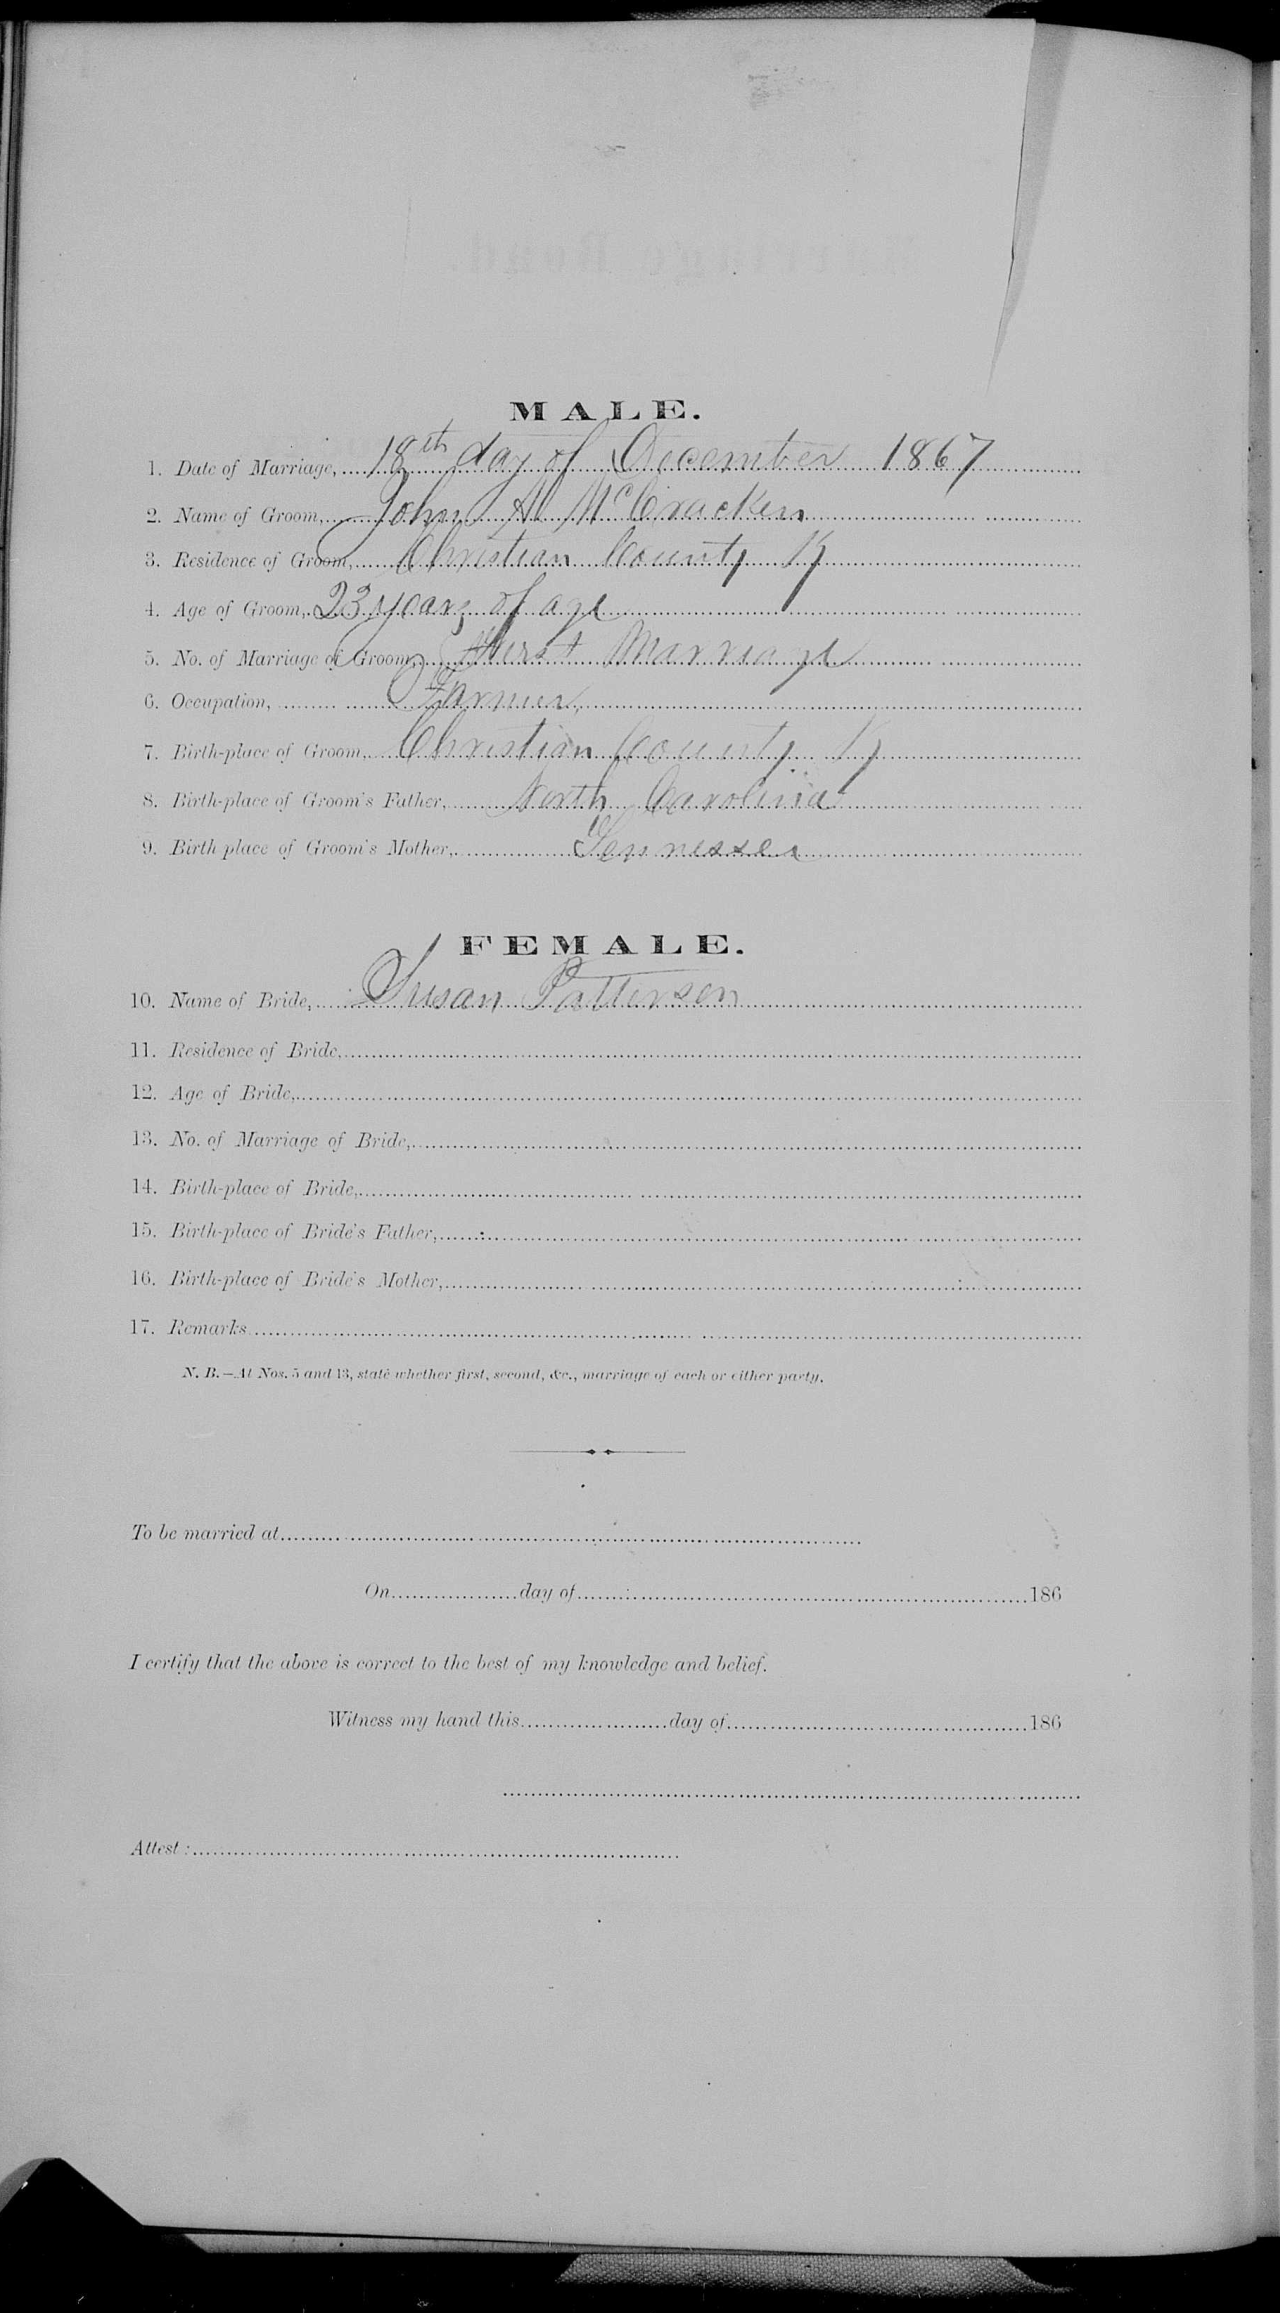 MALE.
1. Date of Marriage, 18th day of December 1867
2. Name of Groom, John A McCracken
3. Residence of Groom, Christian County Ky
4. Age of Groom, 23 years of age
5. No. of Marriage of Groom, First Marriage
6. Occupation, Farmer,
7. Birth-place of Groom, Christian County Ky
8. Birth-place of Groom's Father, North Carolina
9. Birth place of Groom's Mother, Tennessee
FEMALE.
10. Name of Bride, Susan Patterson
11. Residence of Bride,
12. Age of Bride,
13. No. of Marriage of Bride,
14. Birth-place of Bride,
15. Birth-place of Bride's Father,
16. Birth-place of Bride's Mother,
17. Remarks
N. B.—At Nos. 5 and 13, state whether first, second, &c., marriage of each or either party.
To be married at
On day of 186
I certify that the above is correct to the best of my knowledge and belief.
Witness my hand this day of 186
Attest: